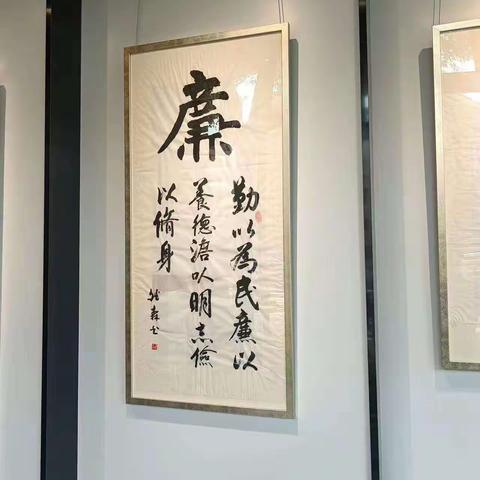 廉
勤以為民廉以
養德淡以明志儉
以脩身